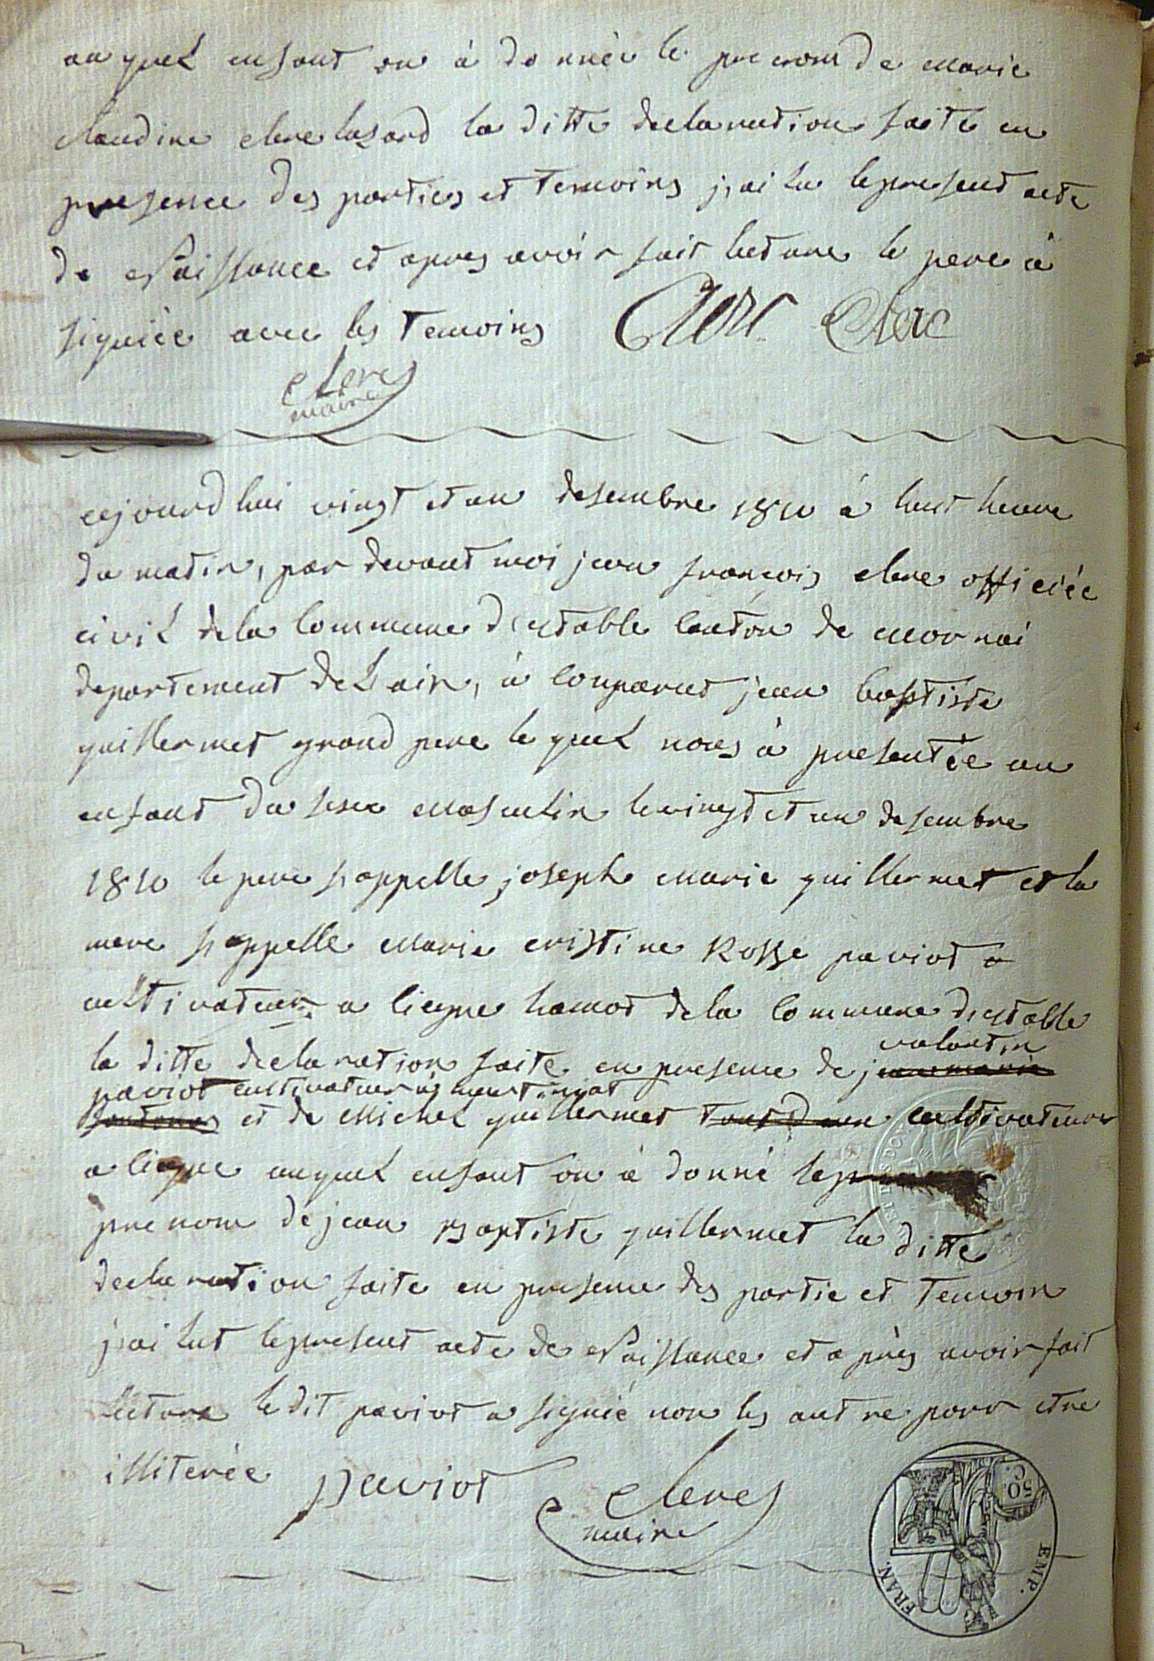 au quel enfant on à donnée le prenom de marie
claudine clerc lasard la ditte declaration faite en
presence des parties et temoins j'ai lu le present acte
de Naissance et apres avoir fait lecture le pere à
signiée avec les temoins Clerc Clerc
clerc
maire
aujourd hui vingt et un desembre 1810 à huit heure
du matin, par devant moi jean françois clerc officiée
civil de la commune d'estable canton de mornai
departement de L'ain, à comparut jean baptiste
guillermet grand pere le quel nous à presentée un
enfant du sexe masculin le vingt et un desembre
1810 le pere s'appelle joseph marie guillermet et la
mere s'appelle marie cristine Rosse paviot
cultivateur a liegne hamot de la commune d'estable
valantin
la ditte declaration faite en presence de jean marie
paviot cultivateur
et de Michel guillermet cultivateur
a liegne auquel enfant on à donné le
prenom de jean Baptiste guillermet la ditte
declaration faite en presence des partie et temoin
j'ai lut le present acte de Naissance et après avoir fait
lecture le dit paviot a signié non les autre pour etre
illiterée paviot clerc
maire
50 C.
FRAN.
EMP.